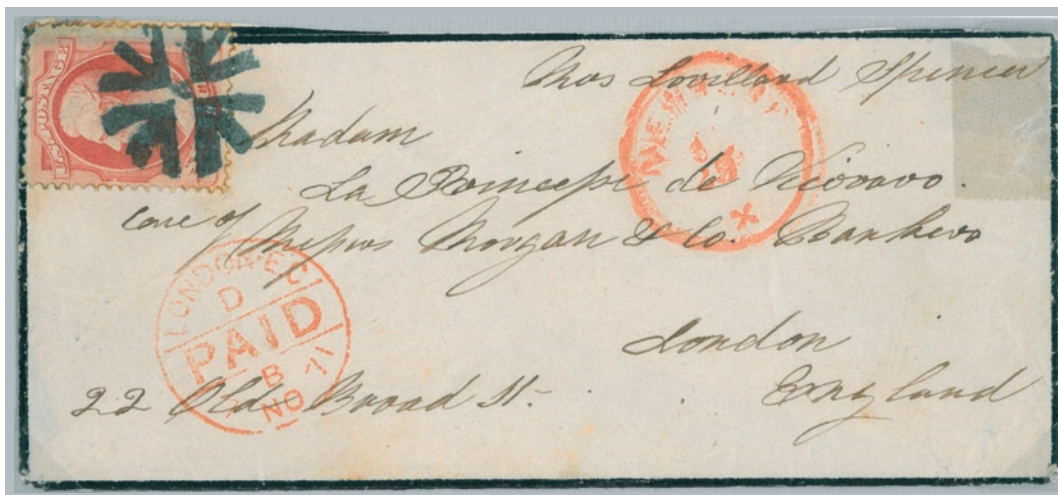 Mrs Lorillard Spencer
Madam
La Princesse de Vicovaro.
Care of Messrs Morgan & Co. Bankers
London
22 Old Broad St.
England
NEW
LONDON E.C
D
PAID
B
NO 71